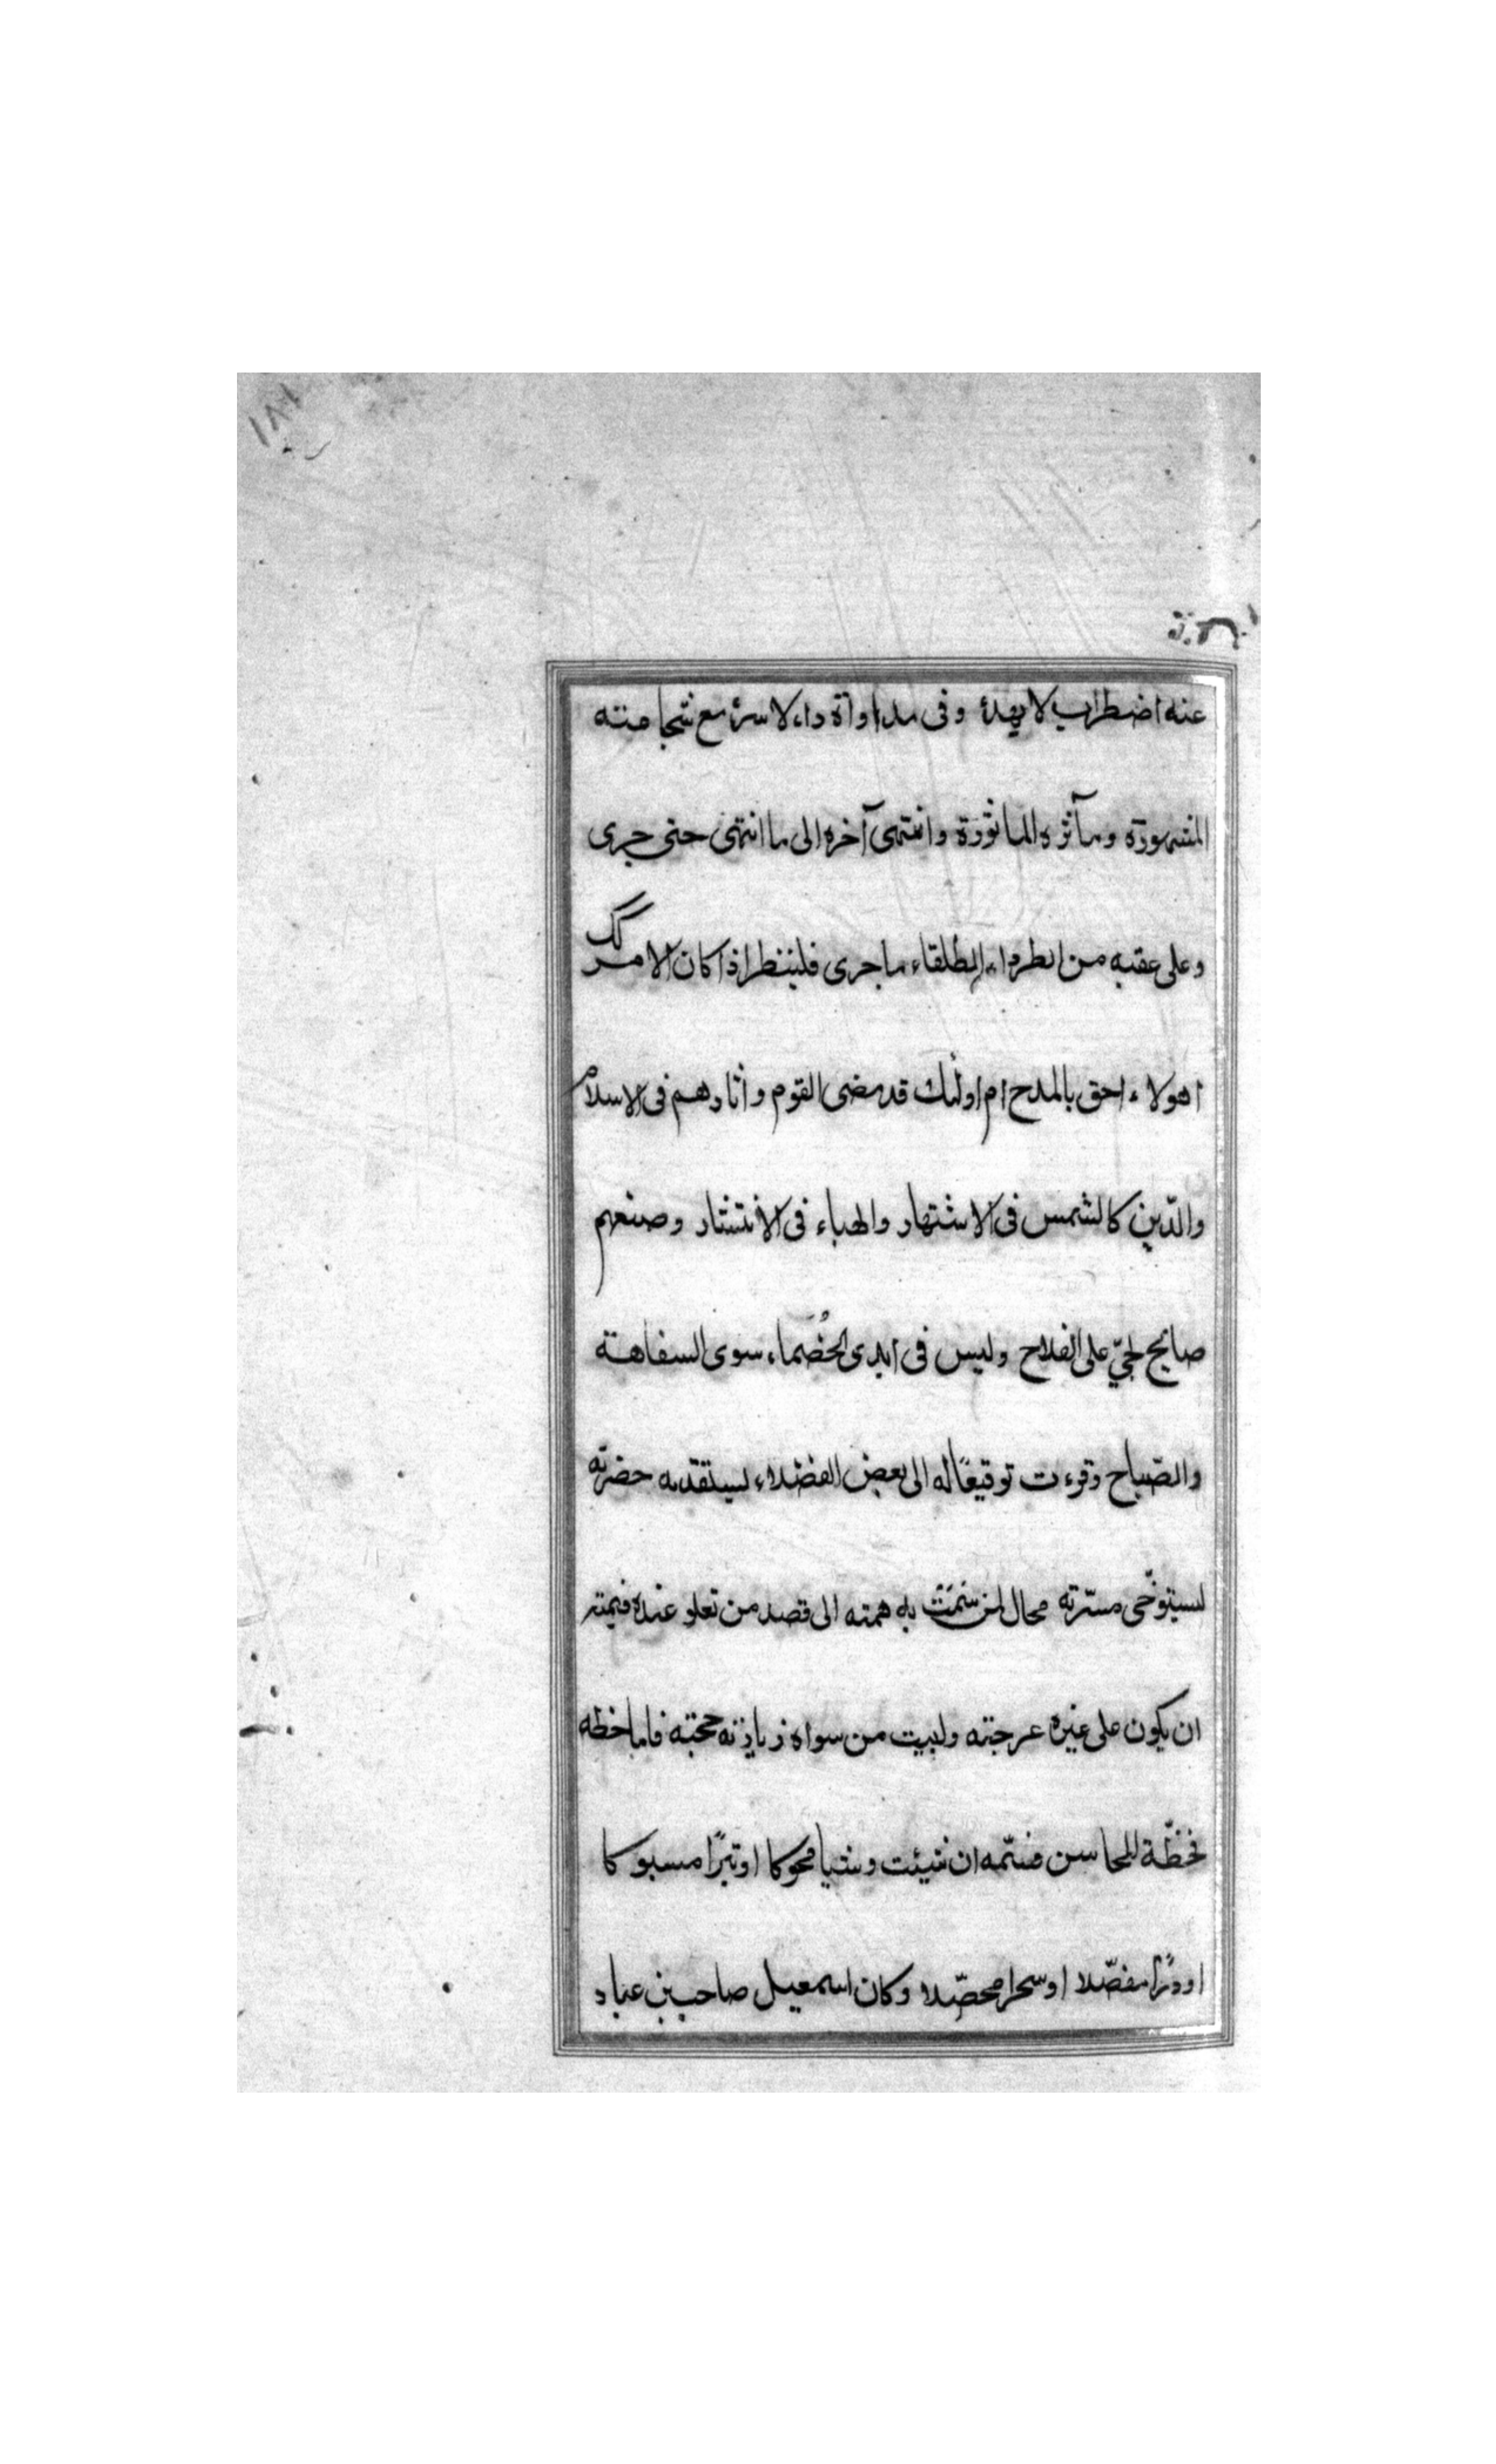 ١٨١
عنه اضطراب لا يهدأ وفى مداواة داء لا سرّ مع شجا منته
المشهورة ومآثره الماثورة وانتهى آخره الى ما انتهى حتى جرى
وعلى عقبه من الطرداء الطلقاء ما جرى فلينظر اذا كان الامر كك
اهولاء احق بالمدح ام اولئك قد مضى القوم واثارهم فى الاسلام
والدّين كالشمس فى الاشتهار والهباء فى الانتشار وصنعهم
صايح لحىّ على الفلاح وليس فى ايدى الخُصَماء سوى السفاهة
والصّياح وقرءت توقيعًا له الى بعض الفضلاء ليستقدمه حضرته
ليستوخّى مسرّته محال لمن سَمَت به همته الى قصد من تعلو عنده قيمته
ان يكون على غيره عرجته ولبيت من سواه زيارته حجته فاما خطه
فخظّة للمحاسن فسمّه ان شيئت وشيا محوكا او تبرًا مسبوكا
او درًا مفصّلا او سحرا محصّلا وكان اسمعيل صاحب بن عباد